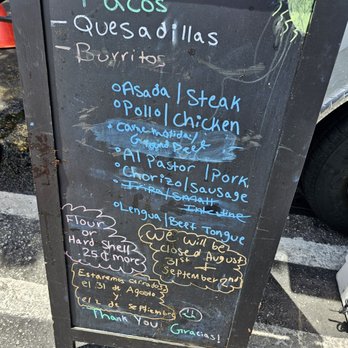 Tacos
- Quesadillas
- Burritos
Asada / Steak
Pollo / Chicken
Carne molida /
Ground Beef
Al Pastor / Pork
Chorizo / Sausage
Tripa / Small
Intestine
Lengua / Beef Tongue
Flour
or
Hard shell
25¢ more
We will be
closed August
31st
+
September 2nd
Estaremos cerrados
el 31 de Agosto
y
el 2 de Septiembre
Thank You
Gracias!